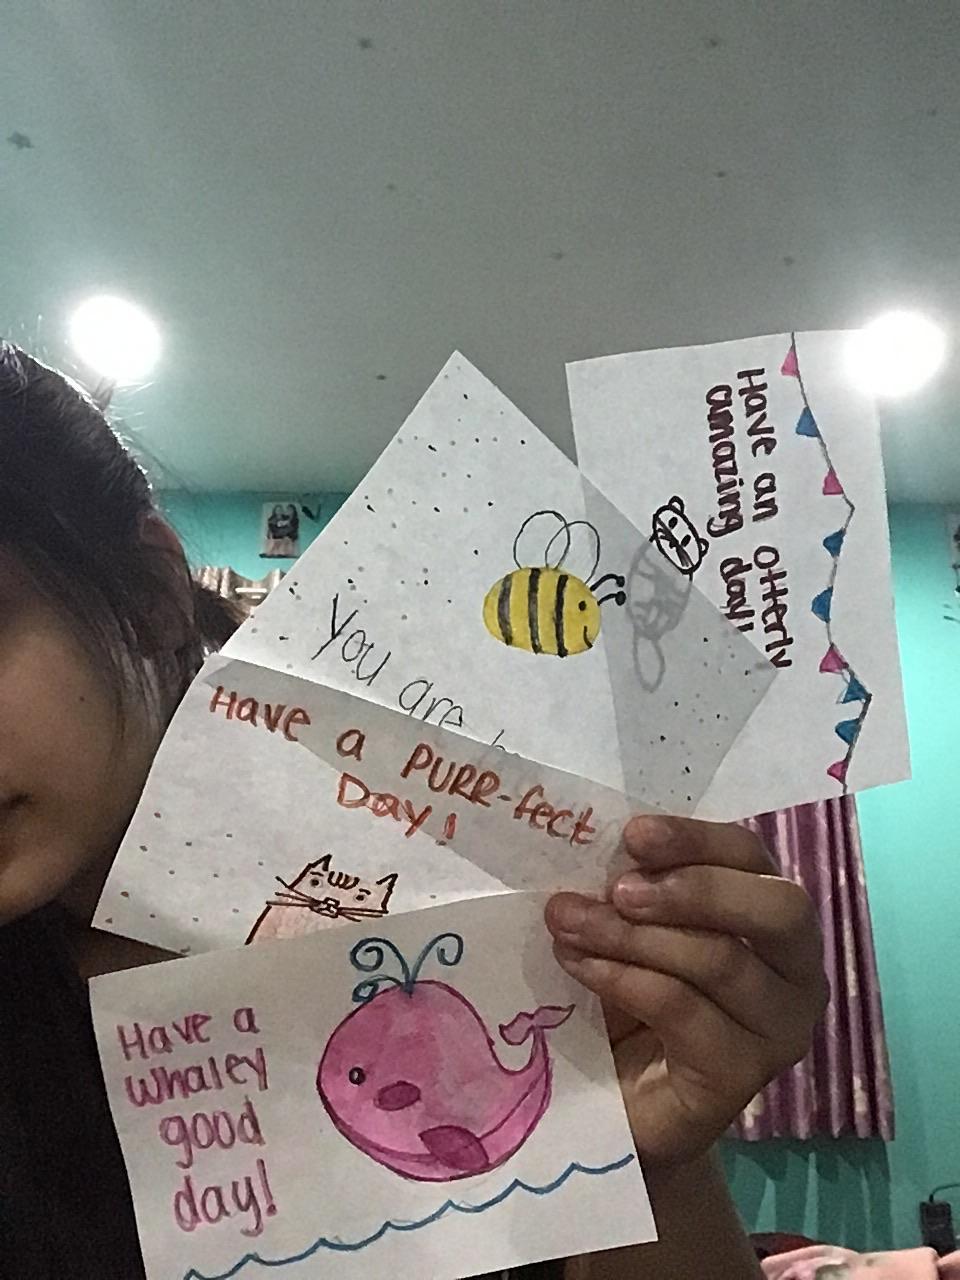 Have an otterly
amazing day!
You are
Have a PURR-fect
Day!
Have a
whaley
good
day!